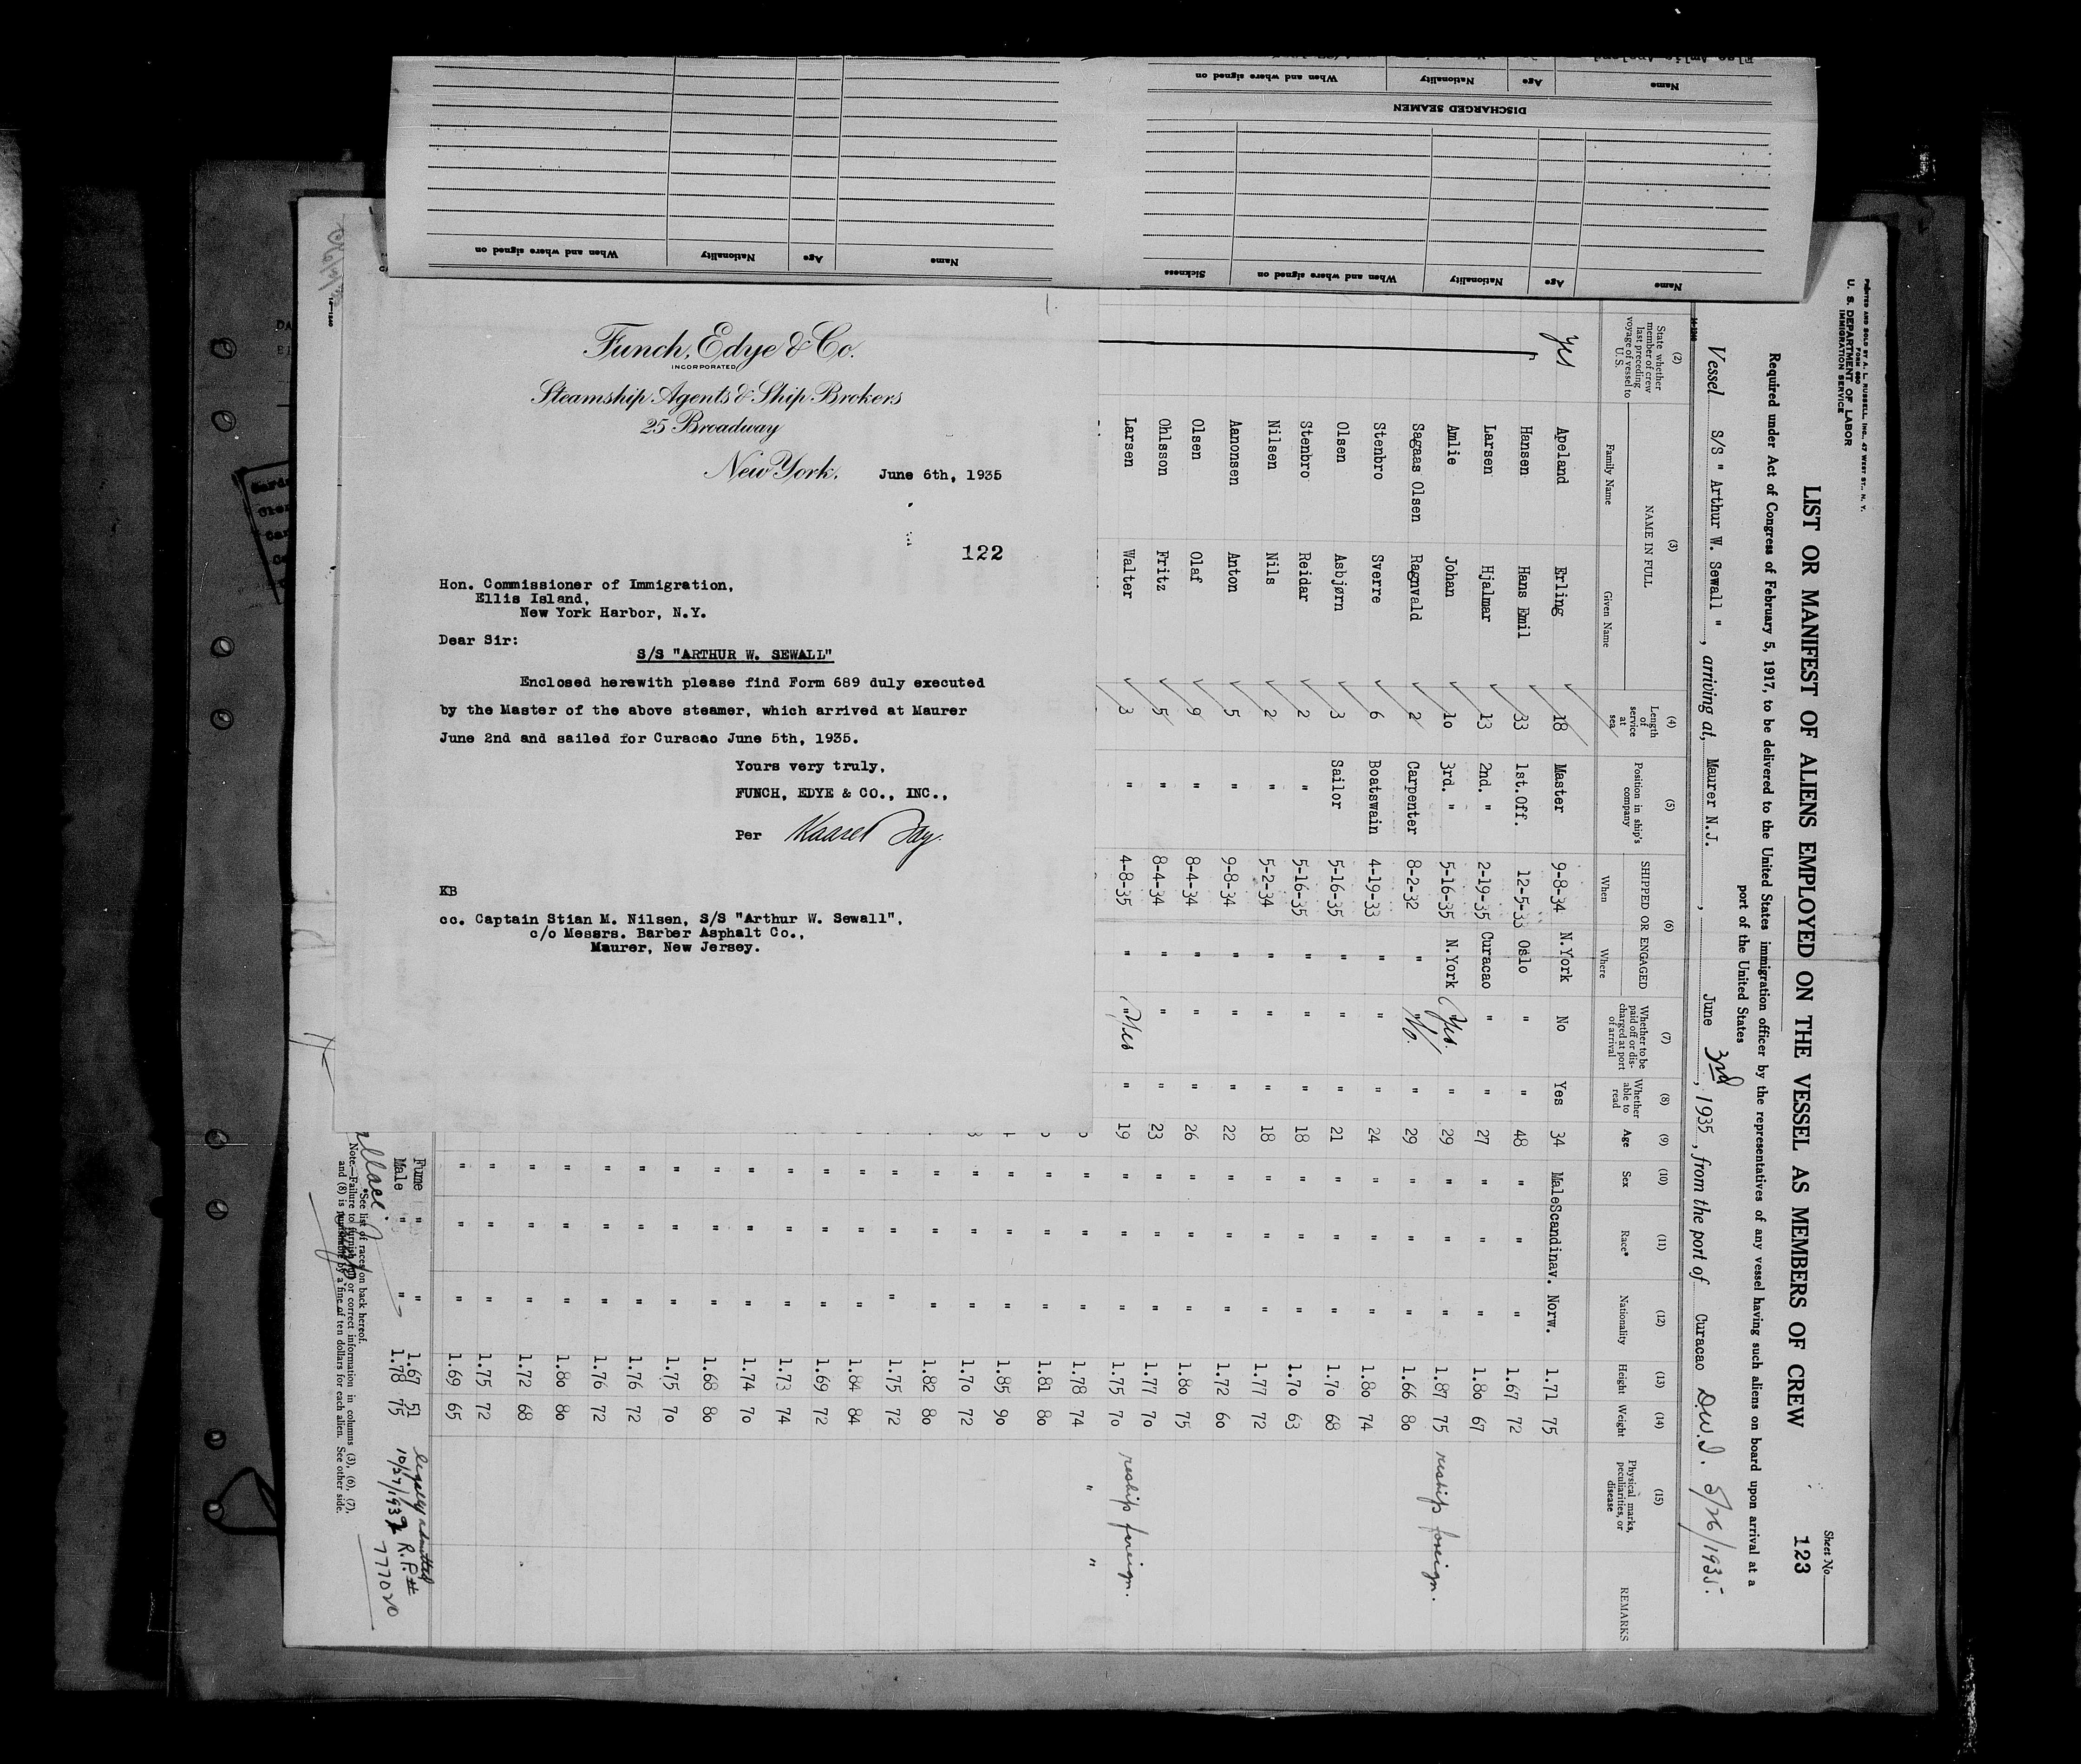 Name Age Nationality When and where signed on
DISCHARGED SEAMEN
Name Age Nationality When and where signed on Sickness
Name Age Nationality When and where signed on
Funch, Edye & Co.
INCORPORATED
Steamship Agents & Ship Brokers
25 Broadway
New York. June 6th, 1935
122
Hon. Commissioner of Immigration,
Ellis Island,
New York Harbor, N.Y.
Dear Sir:
S/S "ARTHUR W. SEWALL"
Enclosed herewith please find Form 689 duly executed
by the Master of the above steamer, which arrived at Maurer
June 2nd and sailed for Curacao June 5th, 1935.
Yours very truly,
FUNCH, EDYE & CO., INC.,
Per
KB
cc. Captain Stian M. Nilsen, S/S "Arthur W. Sewall",
c/o Messrs. Barber Asphalt Co.,
Maurer, New Jersey.
PRINTED AND SOLD BY A. L. RUSSELL, INC., 47 WEST ST., N. Y.
FORM 680
U. S. DEPARTMENT OF LABOR
IMMIGRATION SERVICE
Sheet No.
LIST OR MANIFEST OF ALIENS EMPLOYED ON THE VESSEL AS MEMBERS OF CREW 123
Required under Act of Congress of February 5, 1917, to be delivered to the United States immigration officer by the representatives of any vessel having such aliens on board upon arrival at a
port of the United States
Vessel S/S " Arthur W. Sewall ", arriving at, Maurer N.J., June 3rd, 1935, from the port of Curacao D.W.I. 5/26/1935.
(2) (3) (4) (5) (6) (7) (8) (9) (10) (11) (12) (13) (14) (15)
State whether member of crew last preceding voyage of vessel to U. S. NAME IN FULL Length of service at sea Position in ship's company SHIPPED OR ENGAGED Whether to be paid off or discharged at port of arrival Whether able to read Age Sex Race* Nationality Height Weight Physical marks, peculiarities, or disease REMARKS
Family Name Given Name When Where
yes Apeland Erling 18 Master 9-8-34 N.York No Yes 34 Male Scandinav. Norw. 1.71 75
Hansen Hans Emil 33 1st.Off. 12-5-33 Oslo " " 48 " " " 1.67 72
Larsen Hjalmar 13 2nd. " 2-19-35 Curacao " " 27 " " " 1.80 67
Amlie Johan 10 3rd. " 5-16-35 N.York Yes. " 29 " " " 1.87 75 reship foreign.
Sagaas Olsen Ragnvald 2 Carpenter 8-2-32 " No. " 29 " " " 1.66 80
Stenbro Sverre 6 Boatswain 4-19-33 " " " 24 " " " 1.80 74
Olsen Asbjørn 3 Sailor 5-16-35 " " " 21 " " " 1.70 68
Stenbro Reidar 2 " 5-16-35 " " " 18 " " " 1.70 63
Nilsen Nils 2 " 5-2-34 " " " 18 " " " 1.77 72
Aanonsen Anton 5 " 9-8-34 " " " 22 " " " 1.72 60
Olsen Olaf 9 " 8-4-34 " " " 26 " " " 1.80 75
Ohlsson Fritz 5 " 8-4-34 " " " 23 " " " 1.77 70
Larsen Walter 3 " 4-8-35 " Yes " 19 " " " 1.75 70 reship foreign.
" " " 1.78 74 " "
" " " 1.81 80
" " " 1.85 90
" " " 1.70 72
" " " 1.82 80
" " " 1.75 72
" " " 1.84 84
" " " 1.69 72
" " " 1.73 74
" " " 1.74 70
" " " 1.68 80
" " " 1.75 70
" " " 1.76 72
" " " 1.76 72
" " " 1.80 80
" " " 1.72 68
" " " 1.75 72
" " " 1.69 65
Fume " " 1.67 51 legally admitted
Male " " 1.78 75 10/27/1932 R.P.# 777020
*See list of races on back hereof.
Note.—Failure to furnish full or correct information in columns (3), (6), (7),
and (8) is punishable by a fine of ten dollars for each alien. See other side.